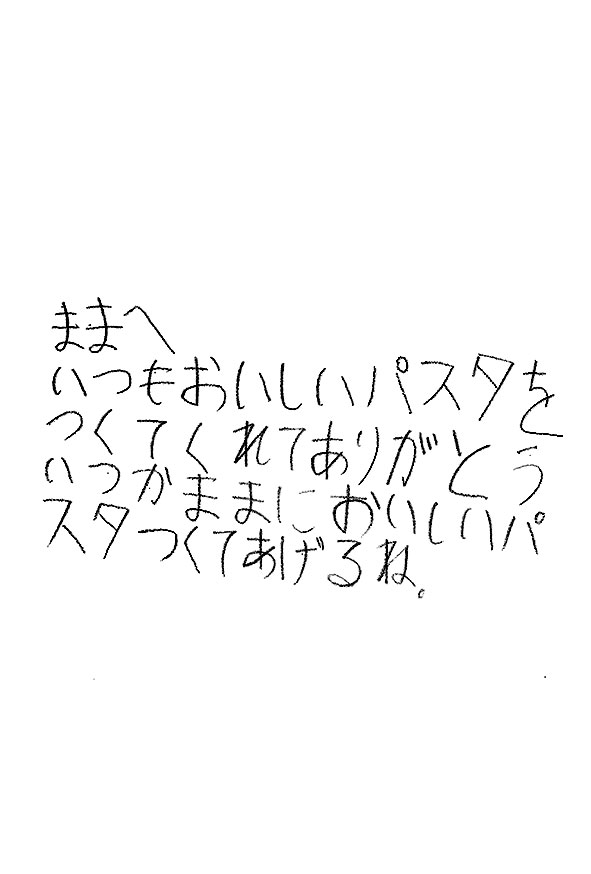 ままへ
いつもおいしいパスタを
つくてくれてありがとう
いつかままにおいしいパ
スタつくてあげるね。